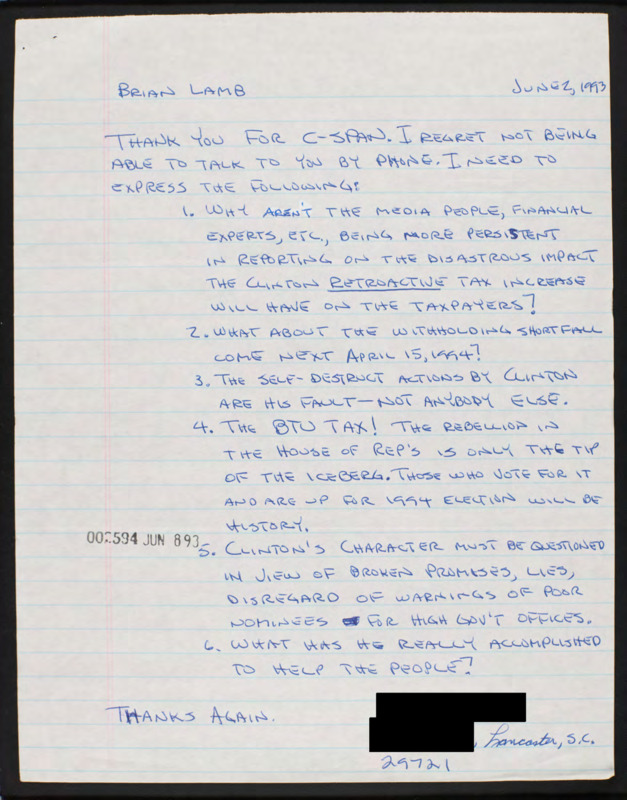 BRIAN LAMB
JUNE 2, 1993
THANK YOU FOR C-SPAN. I REGRET NOT BEING
ABLE TO TALK TO YOU BY PHONE. I NEED TO
EXPRESS THE FOLLOWING:
1. WHY AREN'T THE MEDIA PEOPLE, FINANCIAL
EXPERTS, ETC., BEING MORE PERSISTENT
IN REPORTING ON THE DISASTROUS IMPACT
THE CLINTON RETROACTIVE TAX INCREASE
WILL HAVE ON THE TAXPAYERS?
2. WHAT ABOUT THE WITHHOLDING SHORTFALL
COME NEXT APRIL 15, 1994?
3. THE SELF-DESTRUCT ACTIONS BY CLINTON
ARE HIS FAULT—NOT ANYBODY ELSE.
4. THE BTU TAX! THE REBELLION IN
THE HOUSE OF REP'S IS ONLY THE TIP
OF THE ICEBERG. THOSE WHO VOTE FOR IT
AND ARE UP FOR 1994 ELECTION WILL BE
HISTORY.
002594 JUN 893
5. CLINTON'S CHARACTER MUST BE QUESTIONED
IN VIEW OF BROKEN PROMISES, LIES,
DISREGARD OF WARNINGS OF POOR
NOMINEES FOR HIGH GOV'T OFFICES.
6. WHAT HAS HE REALLY ACCOMPLISHED
TO HELP THE PEOPLE?
THANKS AGAIN.
, Lancaster, S.C.
29721